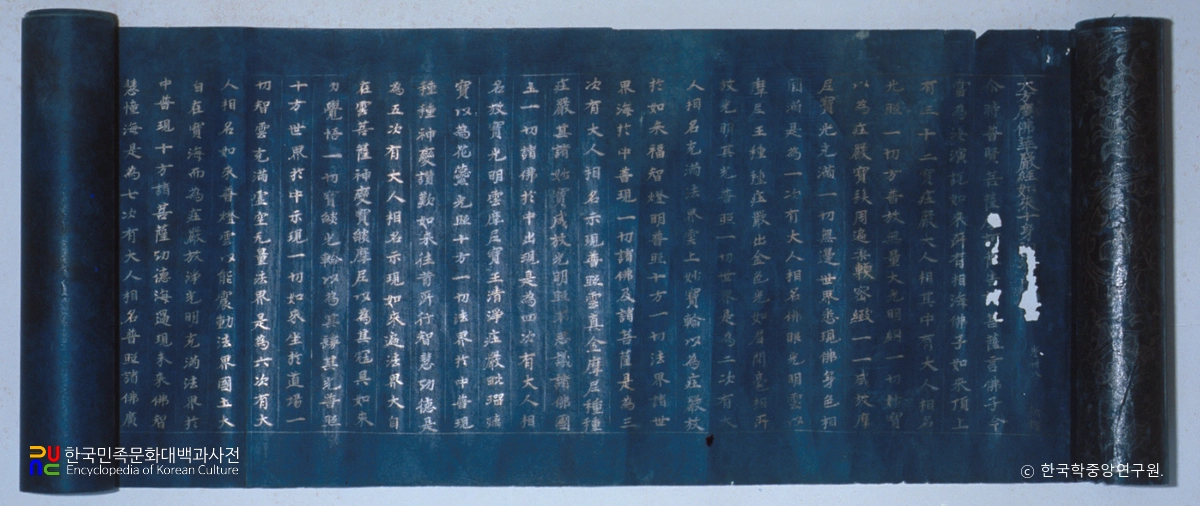 大方廣佛華嚴經如來十身
爾時普賢菩薩 菩薩言佛子今
當為汝演說如來所有相海佛子如來頂上
有三十二寶莊嚴大人相其中有大人相名
光照一切方普放無量大光明網一切妙寶
以為莊嚴寶髮周遍柔軟密緻一一咸放摩
尼寶光充滿一切無邊世界悉現佛身色相
圓滿是為一次有大人相名佛眼光明雲以
摩尼王種種莊嚴出金色光如眉間毫相所
放光明其光普照一切世界是為二次有大
人相名充滿法界雲上妙寶輪以為莊嚴放
於如來福智燈明普照十方一切法界諸世
界海於中普現一切諸佛及諸菩薩是為三
次有大人相名示現普照雲真金摩尼種種
莊嚴其諸妙寶咸放光明照不思議諸佛國
土一切諸佛於中出現是為四次有大人相
名放寶光明雲摩尼寶王清淨莊嚴毗瑠璃
寶以為花蘂光照十方一切法界於中普現
種種神變讚歎如來往昔所行智慧功德是
為五次有大人相名示現如來遍法界大自
在雲菩薩神變寶焰摩尼以為其冠具如來
力覺悟一切寶焰光輪以為其鬘其光普照
十方世界於中示現一切如來坐於道場一
切智雲充滿虛空无量法界是為六次有大
人相名如來普燈雲以能震動法界國土大
自在寶海而為莊嚴放淨光明充滿法界於
中普現十方諸菩薩功德海過現未來佛智
慧幢海是為七次有大人相名普照諸佛廣
한국민족문화대백과사전
Encyclopedia of Korean Culture
© 한국학중앙연구원.